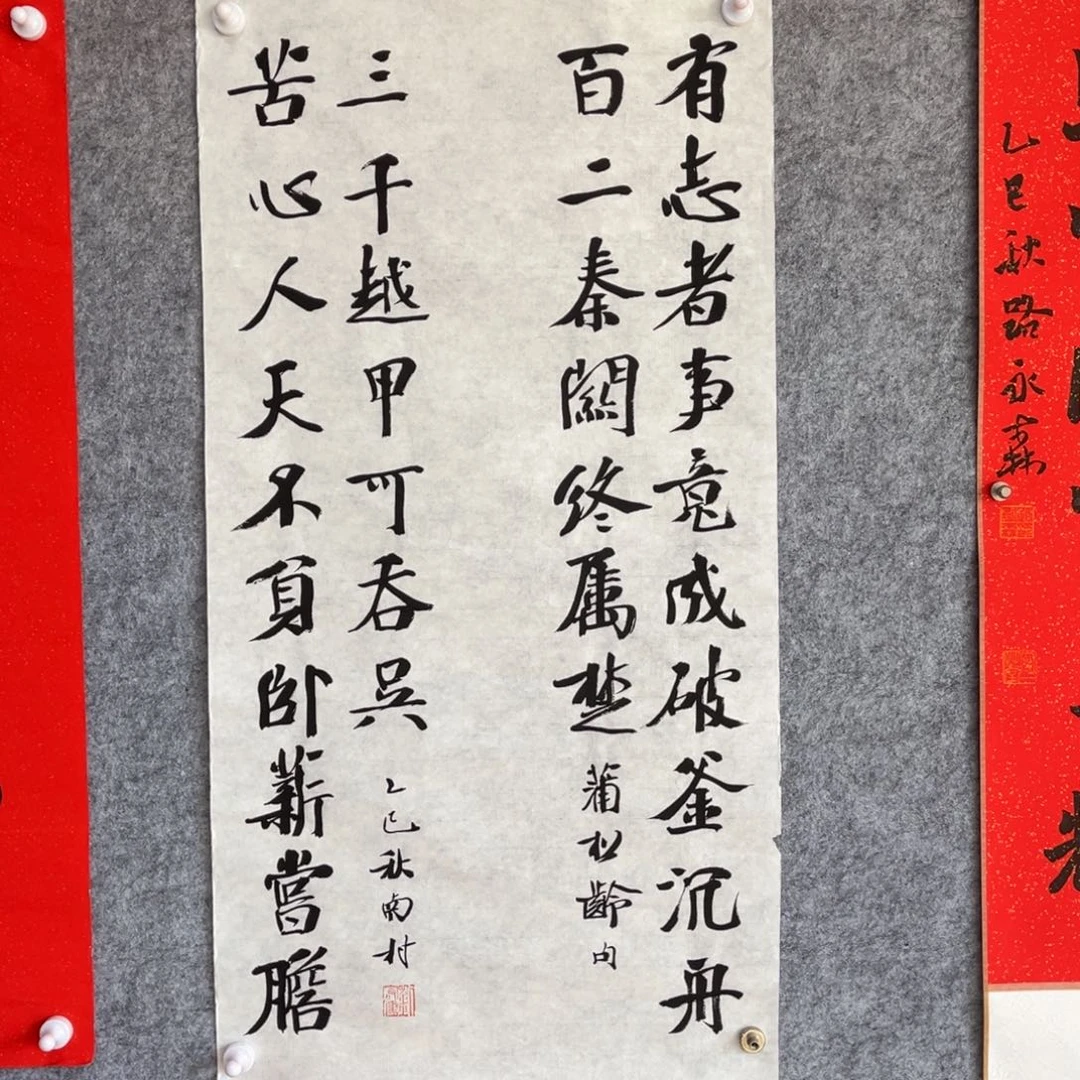 乙巳秋路永森
有志者事竟成破釜沉舟
百二秦關終屬楚
蒲松齡句
苦心人天不負卧薪嘗膽
三千越甲可吞吳
乙巳秋南村